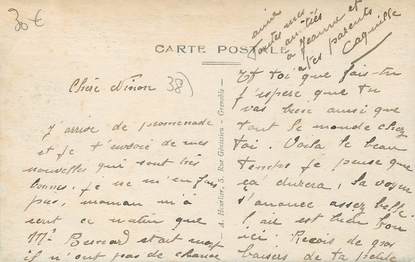 30€
CARTE POSTALE
Chère Ninon
38
J'arrive de promenade
et je t'envoie de mes
nouvelles qui sont très
bonnes. Je ne m'en fais
pas, maman m'a
écrit ce matin que
Mr Bernard était mort
il n'ont pas de chance
A. Hourlier, 5, Rue Génissieu - Grenoble
Et toi que fais-tu
j'espère que tu
vas bien ainsi que
tout le monde chez
toi. Voilà le beau
temps je pense que
ça durera, la saison
s'annonce assez belle
l'air est bien bon
ici. Reçois de gros
baisers de ta petite
amie
faites mes
amitiés
à Jeanne et
à tes parents